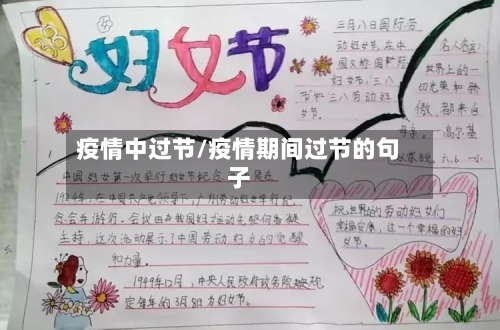 38
妇女节
三月八日国际劳
动妇女节,在中
国又称"国际
妇女节"、三八
节和三八劳动妇
女节。
名人名言:
世界上的一
切光荣和骄
傲,都来自
母亲。高尔基
疫情中过节/疫情期间过节的句
子
中国妇女第一次举行妇女节纪念
是在
1924年,在中国共产党领导下,广州劳动妇女举行纪
念会和游行,会议由中国妇女运动先驱何香凝
主持,这次活动展示了中国劳动妇女的觉醒
和力量。
1949年12月,中央人民政府政务院
定每年的3月8日为妇女节。
祝世界的劳动妇女们
幸福安康,过一个幸福的妇
女节。